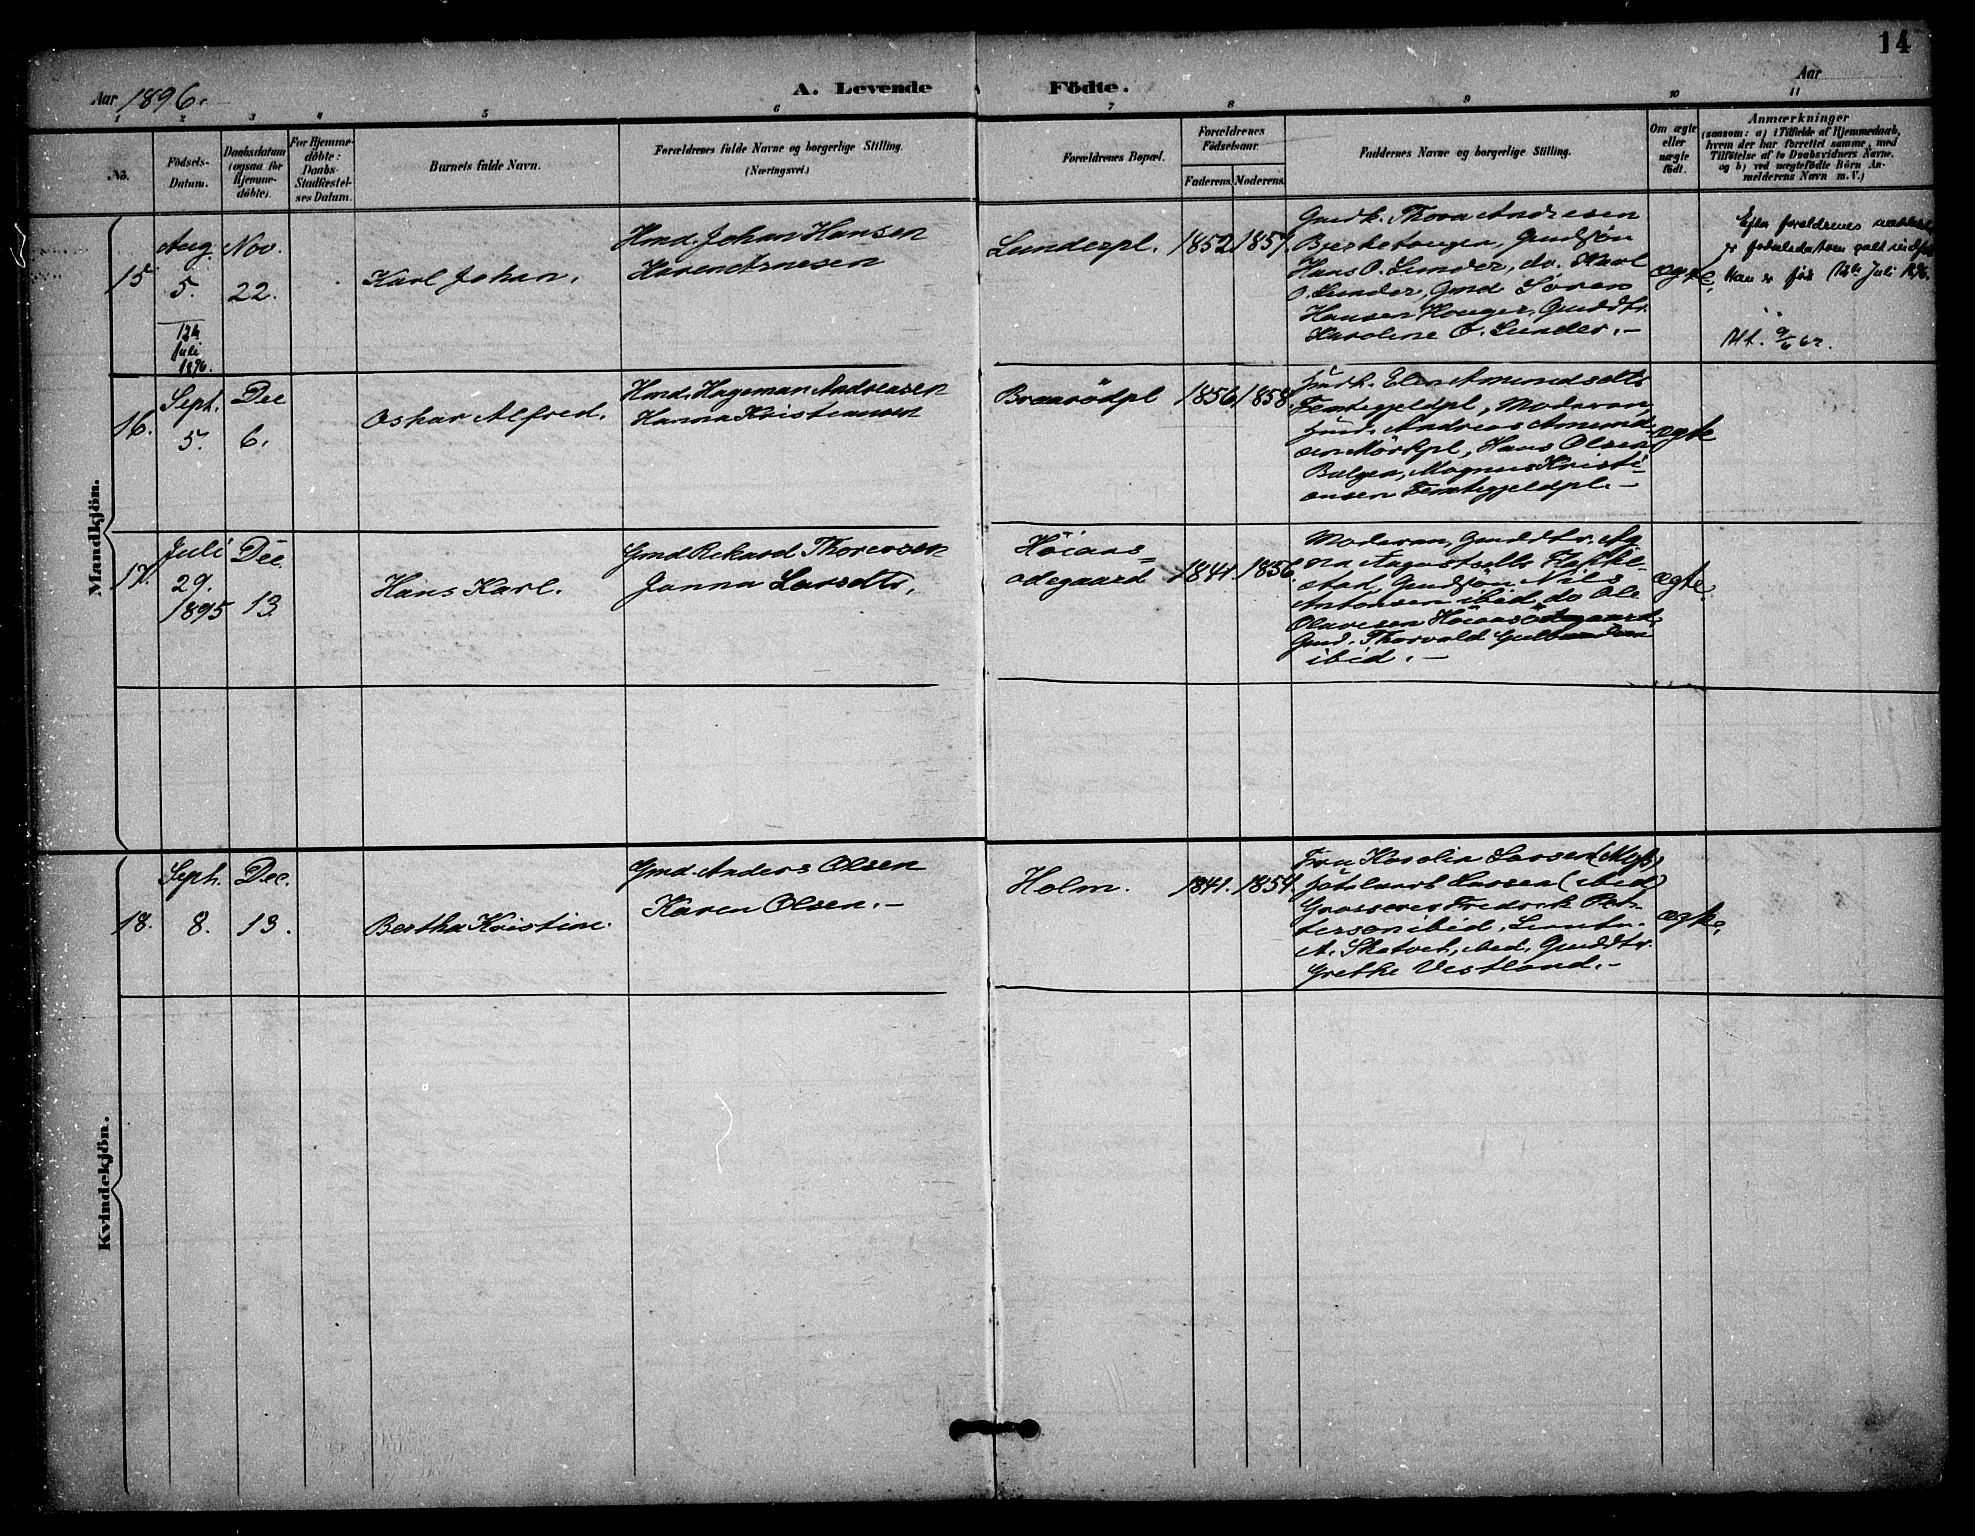 14
Aar 1896.
A. Levende Födte.
Aar
1 2 3 4 5 6 7 8 9 10 11
No.
Födsels-
Datum.
Daabsdatum
(ogsaa for
Hjemme-
döbte).
For Hjemme-
döbte:
Daabs-
Stadfæstel-
ses Datum.
Barnets fulde Navn.
Forældrenes fulde Navne og borgerlige Stilling.
(Næringsvei.)
Forældrenes Bopæl.
Forældrenes
Födselsaar.
Faderens. Moderens.
Faddernes Navne og borgerlige Stilling.
Om ægte
eller
uægte
födt.
Anmærkninger
(saasom: a) i Tilfælde af Hjemmedaab,
hvem der har forrettet samme, med
Tilföielse af to Daabsvidners Navne,
og b) ved uægtefödte Börn An-
melderens Navn m. V.)
Mandkjön.
15
Aug.
5.
12th
Juli
1896.
Nov.
22.
Karl Johan.
Hmd. Johan Hansen
Karen Arnesen
Lunderpl.
1852 1857
Gmdk. Thora Andresen
Gmdsön
Hans O. Lunder, do. Karl
O. Lunder, Gmd Søren
Hansen Gmddtr.
Karoline O. Lunder.-
ægte.
Efter foreldrenes
er fødselsdatoen galt
Han er født 12te Juli 1896.
16.
Sept.
5.
Dec
6.
Oskar Alfred.
Hmd. Hageman Andreasen
Hanna Kristiansen
Braarödpl
1856 1858.
Elen Amundsdtr
Femtegjeldpl, Moderen,
Andreas Amund-
sen Mörkpl, Hans Olsen
Magnus Kristi-
ansen Femtegjeldpl.-
ægte
17.
Juli
29.
1895
Dec.
13.
Hans Karl.
Gmd Rikard Thoresen
Janna Larsdtr.
Höiaas-
ödegaard
1841 1856.
Moderen, Gmddtr. Ag-
Gmdsön Nils
Antonsen ibid, do Ole
Olavesen Höiaasödegaard,
Gmd. Thorvald
ibid.-
ægte.
Kvindekjön.
18.
Sept.
8.
Dec.
13.
Bertha Kristine.
Gmd. Anders Olsen
Karen Olsen.-
Holm.
1841. 1854.
Fru Karolin Larsen
Larsen (ibid)
Grosserer Fredrik Pet-
tersen ibid,
ibid, Gmddtr.
Grethe Vestland.-
ægte.